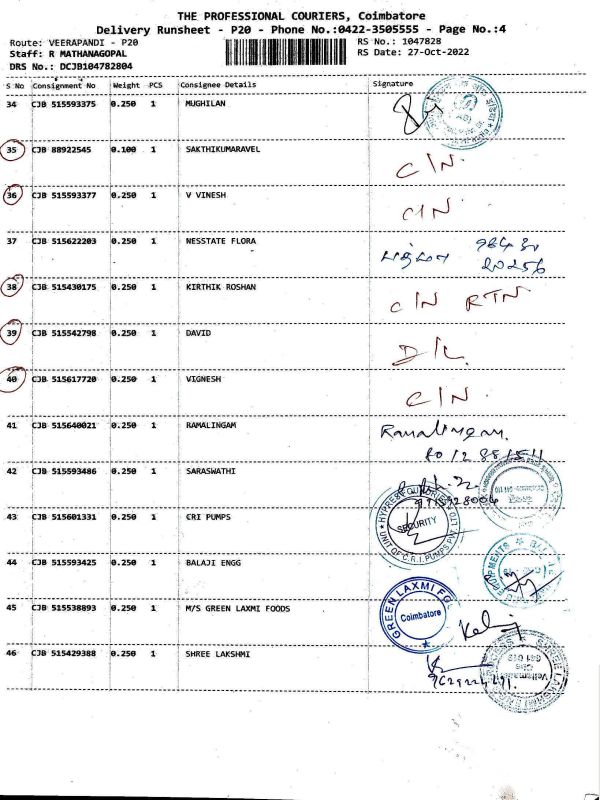 THE PROFESSIONAL COURIERS, Coimbatore
Delivery Runsheet - P20 - Phone No.:0422-3505555 - Page No.:4
Route: VEERAPANDI - P20 RS No.: 1047828
Staff: R MATHANAGOPAL RS Date: 27-Oct-2022
DRS No.: DCJB104782804
S No Consignment No Weight PCS Consignee Details Signature
34 CJB 515593375 0.250 1 MUGHILAN
35 CJB 88922545 0.100 1 SAKTHIKUMARAVEL C/N.
36 CJB 515593377 0.250 1 V VINESH C/N.
37 CJB 515622203 0.250 1 NESSTATE FLORA
38 CJB 515430175 0.250 1 KIRTHIK ROSHAN C/N RTN
39 CJB 515542798 0.250 1 DAVID D/L.
40 CJB 515617720 0.250 1 VIGNESH C/N.
41 CJB 515640021 0.250 1 RAMALINGAM Ramalingam.
42 CJB 515593486 0.250 1 SARASWATHI
43 CJB 515601331 0.250 1 CRI PUMPS SECURITY
UNIT OF C.R.I. PUMPS PVT. LTD
44 CJB 515593425 0.250 1 BALAJI ENGG
45 CJB 515538893 0.250 1 M/S GREEN LAXMI FOODS GREEN LAXMI Coimbatore
46 CJB 515429388 0.250 1 SHREE LAKSHMI